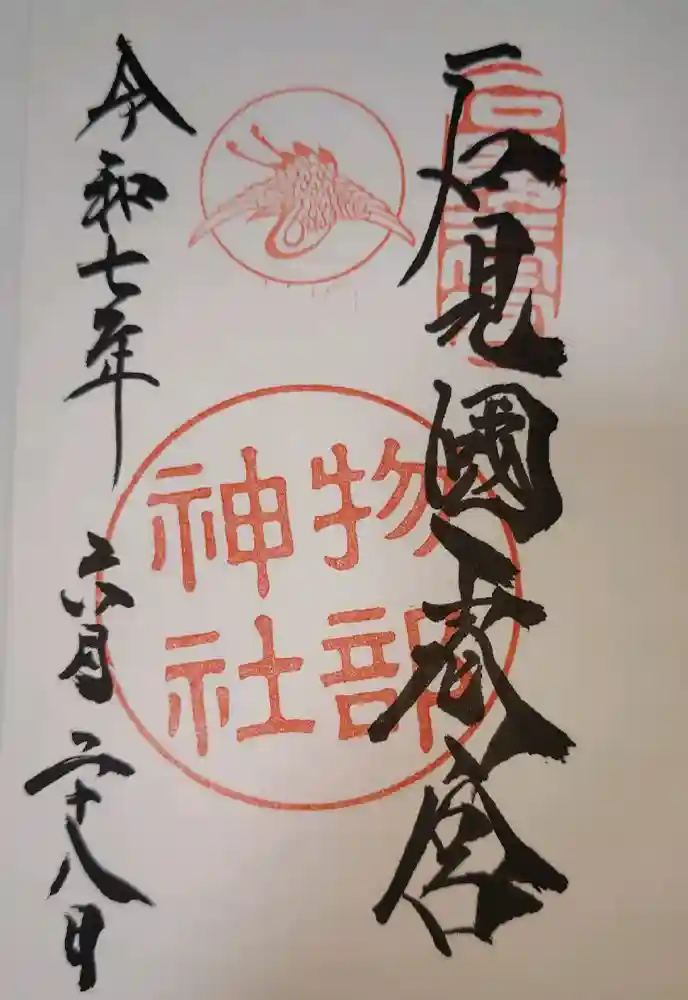 石見國宮
物部
神社
令和七年 六月二十八日